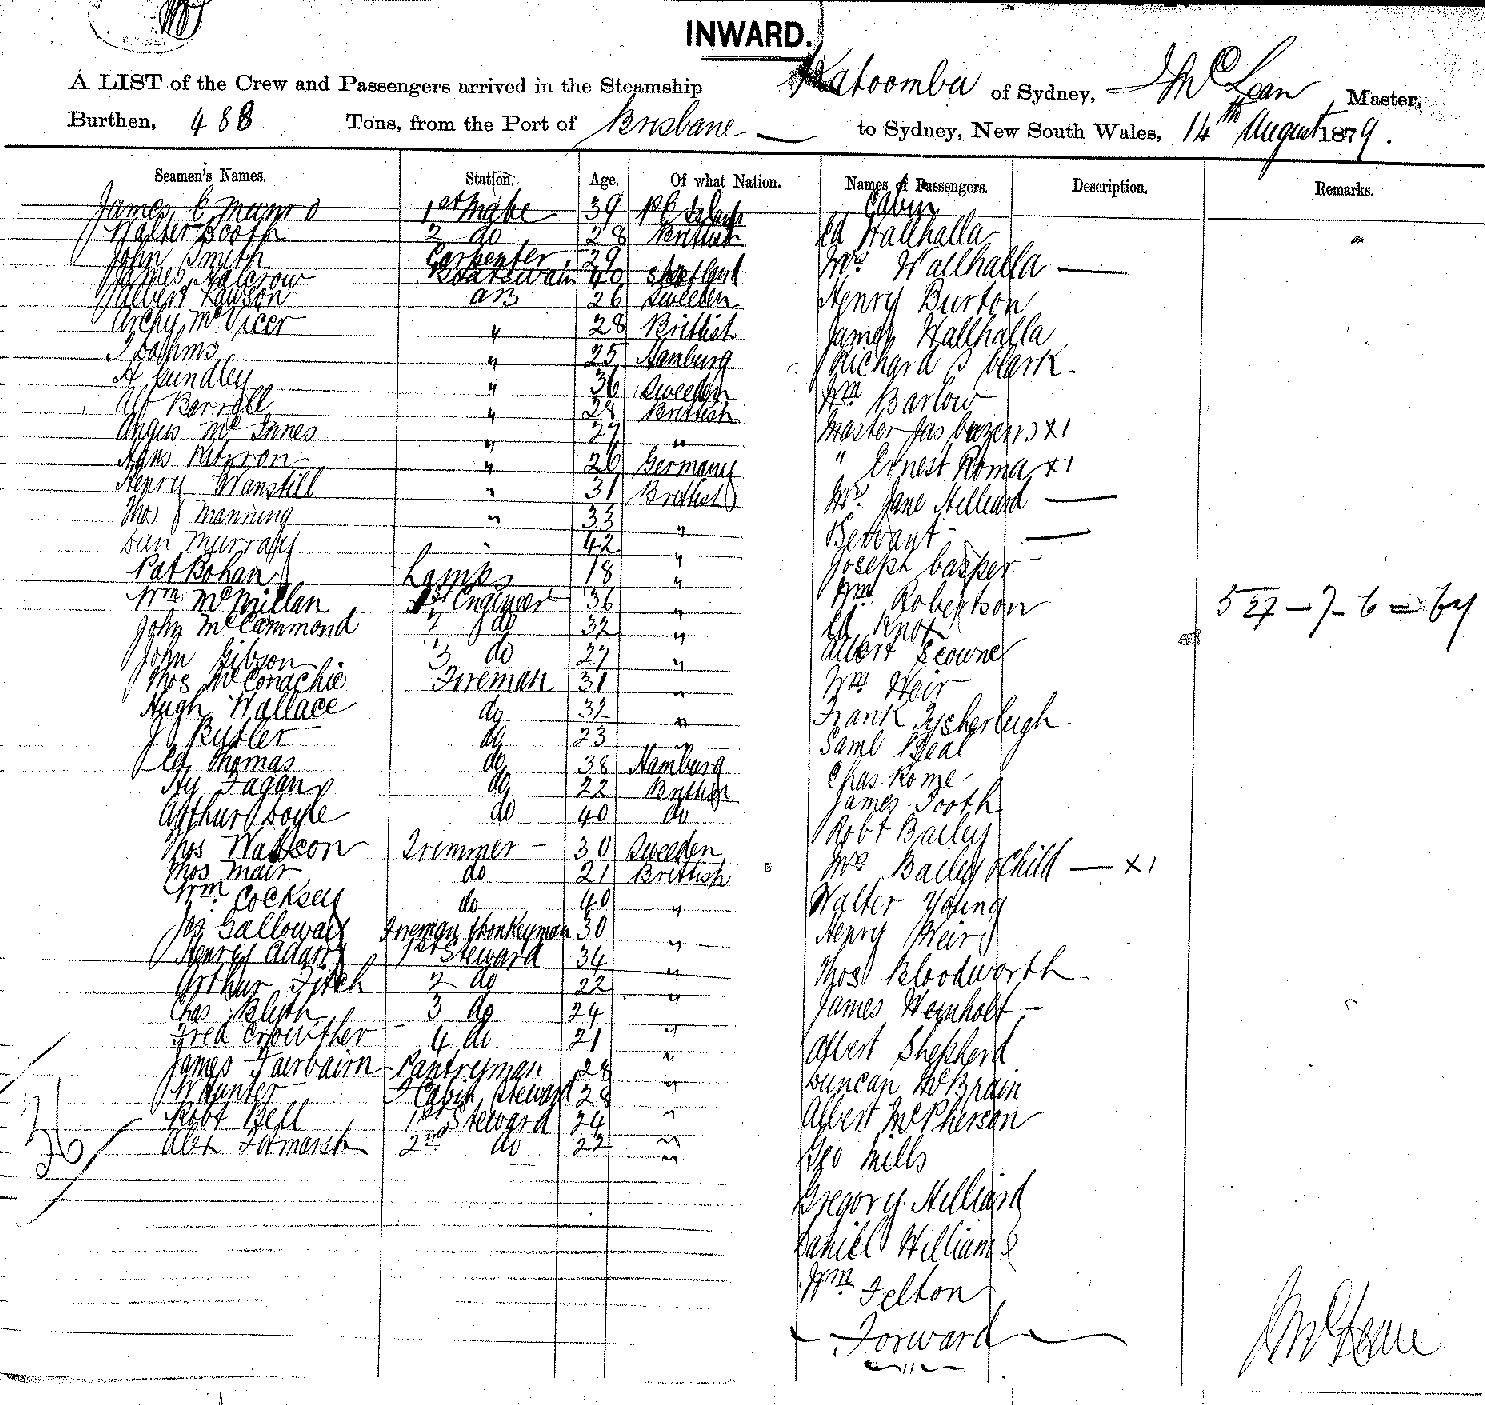 INWARD.
A LIST of the Crew and Passengers arrived in the Steamship Katoomba of Sydney, J McLean Master,
Burthen, 488 Tons, from the Port of Brisbane to Sydney, New South Wales, 14th August 1879.
Seamen's Names. Station. Age. Of what Nation. Names of Passengers. Description. Remarks.
James C Munro 1st Mate 39 Cabin
Walter Booth 2 do 28 Brittish Ed Wallhalla
John Smith Carpenter 29 Mrs Wallhalla —
James Boatswain 40 Shetland Henry Burton
Lawson AB 26 Sweden James Wallhalla
Archy McVicer " 28 Brittish Richard S Clark
Joachims " 25 Hamburg Wm Barlow
A Lundley " 36 Sweden Master Jas x1
Alf Barrall " 28 Brittish " Ernest Roma x1
Angus McInnes " 27 " Mrs Jane Hilliard —
Hans " 26 Germany Servant —
Henry Wanstill " 31 Brittish Joseph Casper
Thos J Manning " 33 " Wm Robertson
Dun Murray 42 " Ed Knox
Pat Bohan Lamps 18 " Albert Browne
Wm McMillan 1st Engineer 36 " Wm Weir
John McCammond 2 do 32 " Frank Tycherleigh
John Gibson 3 do 27 " Saml Beal
Thos McConachie Fireman 31 " Chas Rome
Hugh Wallace do 32 " James Tooth
J Butler do 23 " Robt Bailey
Ed Thomas do 38 Hamburg Mrs Bailey & Child — x1
Hy Fagan do 22 Brittish Walter Young
Arthur Doyle do 40 do Henry Weir
Thos Watson Trimmer 30 Sweden Thos Bloodworth
Thos Mair do 21 Brittish James Weinholt
Wm Cocksey do 40 " Albert Shepherd
Jas Galloway Fireman & Donkeyman 30 " Duncan McBrain
Henry Adams 1st Steward 34 " Albert McPherson
Arthur Fitch 2 do 22 " Geo Mills
Chas Blyth 3 do 24 " Gregory Hilliard
Fred Crowther 4 do 21 " Daniel Williams
James Fairbairn Pantryman 28 " Wm Felton
W Hunter F Cabin Steward 28 " Forward
Robt Bell 1st Steward 24 "
Alex 2nd do 22 "
36
527 – 7 – 6 = 64
J McLean